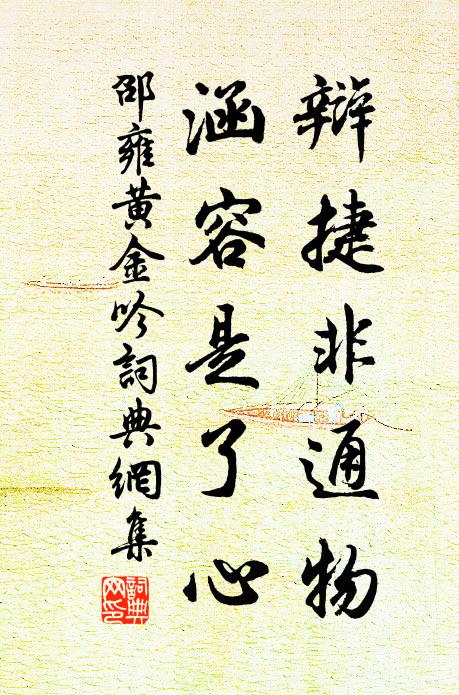 辯捷非通物
涵容是了心
邵雍黃金吟詞典網集
詞典網印